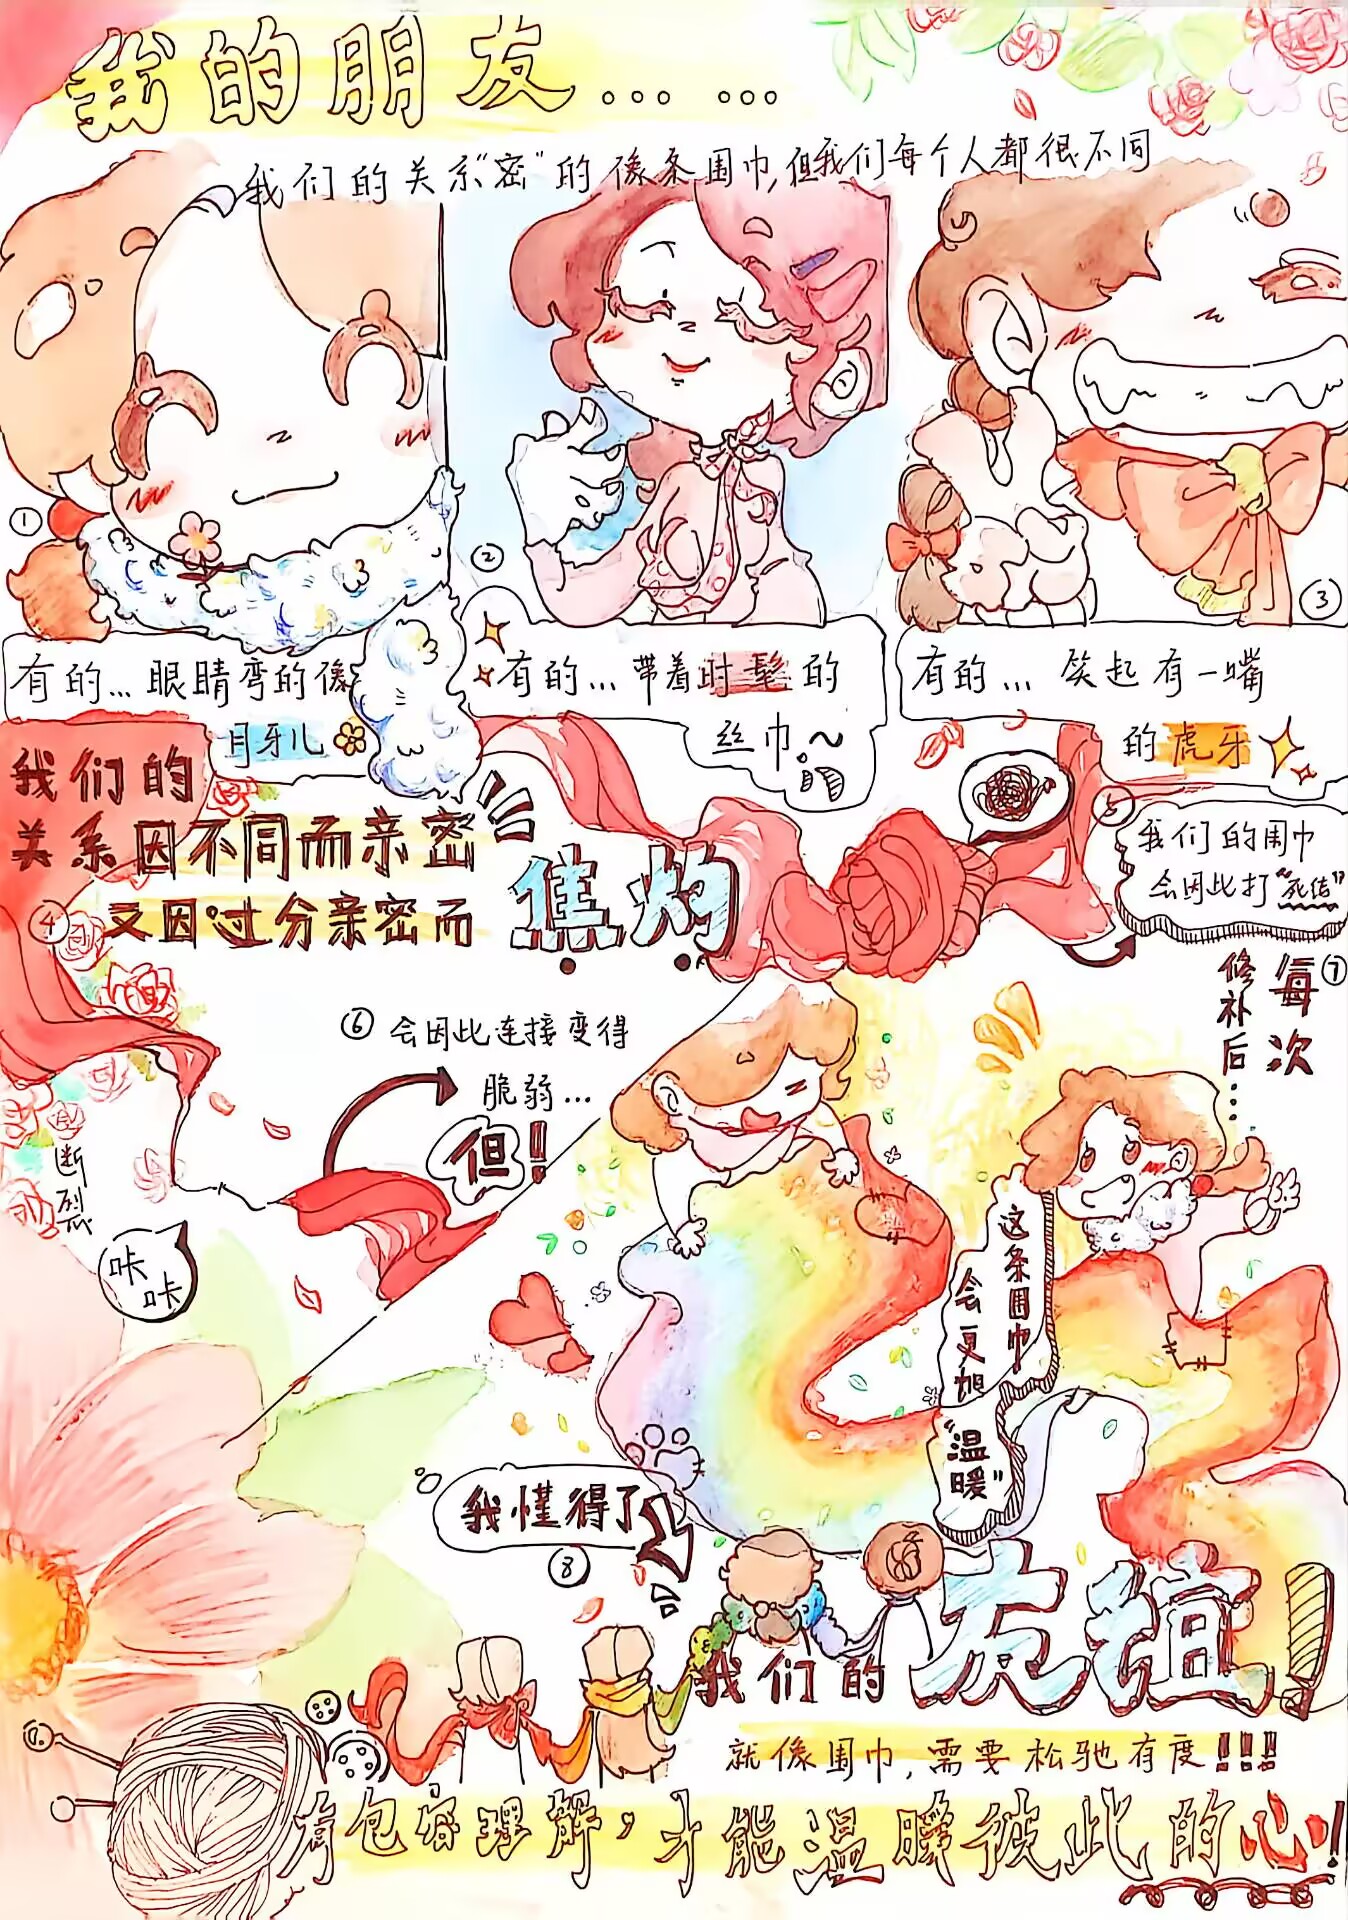 我的朋友……
我们的关系“密”的像条围巾,但我们每个人都很不同
①
有的…眼睛弯的像
月牙儿
②
有的…带着时髦的
丝巾~
③
有的…笑起有一嘴
的虎牙
我们的
关系因不同而亲密
④又因过分亲密而焦灼
⑤
我们的围巾
会因此打“死结”
⑥会因此连接变得
脆弱…
但!!
断裂
咔咔
⑦
每次
修补后…
这条围巾
会更加
“温暖”
我懂得了
⑧
我们的友谊!
就像围巾,需要松驰有度!!!
有包容理解,才能温暖彼此的心!